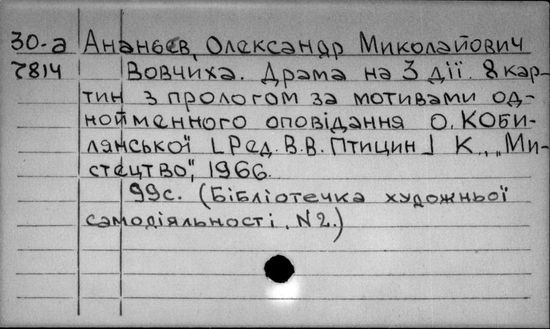 30-а Ананьєв, Олександр Миколайович
2814 Вовчиха. Драма на 3 дії. 8 кар-
тин з прологом за мотивами од-
нойменного оповідання О. Коби-
лянської [Ред. В.В. Птицин] К., „Ми-
стецтво", 1966.
99с. (Бібліотечка художньої
самодіяльності, N2.)